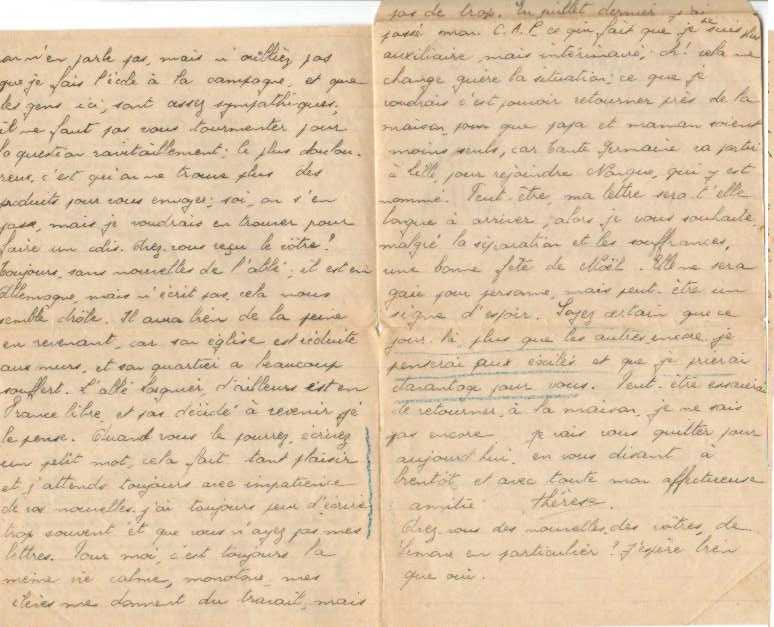 on n'en parle pas, mais n'oubliez pas
que je fais l'école à la campagne, et que
les gens ici, sont assez sympathiques,
il ne faut pas vous tourmenter pour
la question ravitaillement; le plus doulou-
reux, c'est qu'on ne trouve plus des
produits pour vous envoyer; soi, on s'en
passe, mais je voudrais en trouver pour
faire un colis. Avez-vous reçu le vôtre?
Toujours, sans nouvelles de l'abbé; il est en
Allemagne, mais n'écrit pas, cela nous
semble drôle. Il aura bien de la peine
en revenant, car son église est réduite
aux murs, et son quartier a beaucoup
souffert. L'abbé d'ailleurs est en
France libre, et pas décidé à revenir je
le pense. Quand vous le pourrez, écrivez
un petit mot, cela fait tant plaisir
et j'attends toujours avec impatience
de vos nouvelles. j'ai toujours peur d'écrire
trop souvent et que vous n'ayez pas mes
lettres. Pour moi, c'est toujours la
même vie calme, monotone, mes
élèves me donnent du travail, mais
pas de trop. En juillet dernier j'ai
passé mon C.A.P. ce qui fait que je ne suis plus
auxiliaire, mais intérimaire; oh! cela ne
change guère la situation; ce que je
voudrais c'est pouvoir retourner près de la
maison, pour que papa et maman soient
moins seuls, car tante Germaine va partir
à Lille, pour rejoindre qui y est
nommé. Peut-être, ma lettre sera-t'elle
longue à arriver, alors, je vous souhaite,
malgré la séparation et les souffrances,
une bonne fête de Noël. Elle ne sera
gaie pour personne, mais peut-être un
signe d'espoir. Soyez certain que ce
jour-là plus que les autres encore je
penserai aux exilés et que je prierai
davantage pour vous. Peut-être essaierai
de retourner à la maison, je ne sais
pas encore. je vais vous quitter pour
aujourd'hui en vous disant à
bientôt, et avec toute mon affectueuse
amitié Thérèse.
Avez-vous des nouvelles des vôtres, de
Simone en particulier? J'espère bien
que oui.